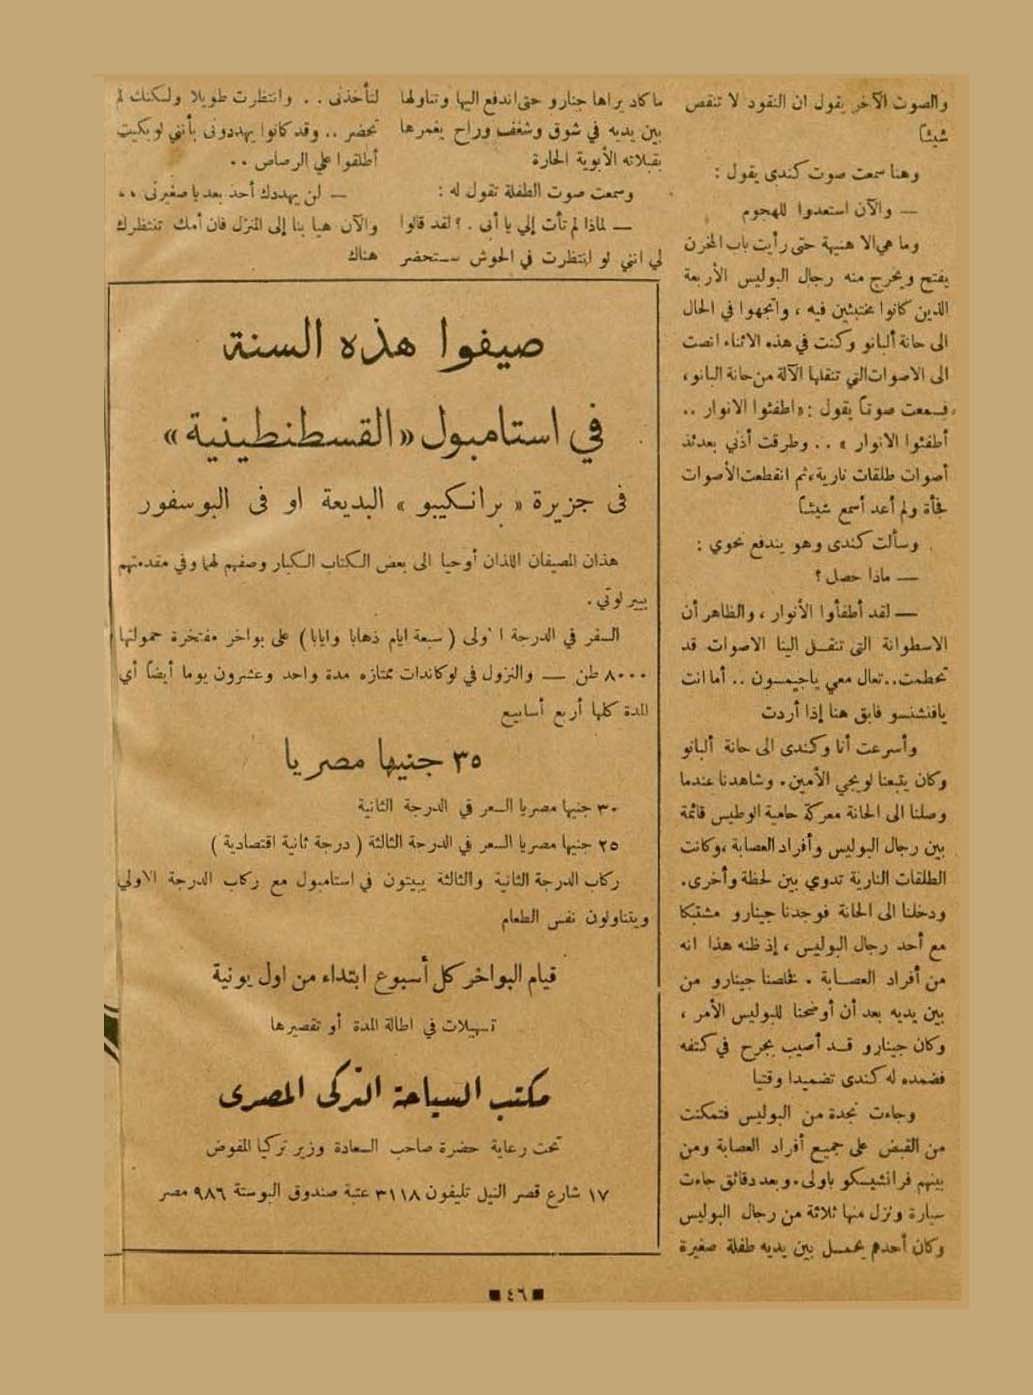 والصوت الآخر يقول ان النقود لا تنقص
شيئاً
وهنا سمعت صوت كندى يقول :
— والآن استعدوا للهجوم
وما هي الا هنيهة حتى رأيت باب المخزن
يفتح ويخرج منه رجال البوليس الأربعة
الذين كانوا مختبئين فيه ، واتجهوا في الحال
الى حانة ألبانو وكنت في هذه الاثناء انصت
الى الاصوات التي تنقلها الآلة من حانة البانو ،
فسمعت صوتاً يقول : « اطفئوا الانوار ..
أطفئوا الانوار » .. وطرقت أذني بعدئذ
أصوات طلقات نارية ، ثم انقطعت الأصوات
فجأة ولم أعد أسمع شيئاً
وسألت كندى وهو يندفع نحوي :
— ماذا حصل ؟
— لقد أطفأوا الأنوار ، والظاهر أن
الاسطوانة التى تنقل الينا الاصوات قد
تحطمت .. تعال معي ياجيمسون .. أما انت
يافنشنسو فابق هنا إذا أردت
وأسرعت أنا وكندى الى حانة ألبانو
وكان يتبعنا لويجي الأمين . وشاهدنا عندما
وصلنا الى الحانة معركة حامية الوطيس قائمة
بين رجال البوليس وأفراد العصابة ، وكانت
الطلقات النارية تدوي بين لحظة وأخرى .
ودخلنا الى الحانة فوجدنا جينارو مشتبكا
مع أحد رجال البوليس ، إذ ظنه هذا انه
من أفراد العصابة . فخلصنا جينارو من
بين يديه بعد أن أوضحنا للبوليس الأمر ،
وكان جينارو قد أصيب بجرح في كتفه
فضمده له كندى تضميدا وقتيا
وجاءت نجدة من البوليس فتمكنت
من القبض على جميع أفراد العصابة ومن
بينهم فرانشيسكو باولى . وبعد دقائق جاءت
سيارة ونزل منها ثلاثة من رجال البوليس
وكان أحدهم يحمل بين يديه طفلة صغيرة
ما كاد يراها جنارو حتى اندفع اليها وتناولها
بين يديه في شوق وشغف وراح يغمرها
بقبلاته الأبوية الحارة
وسمعت صوت الطفلة تقول له :
— لماذا لم تأت إلي يا أبى . ؟ لقد قالوا
لي انني لو انتظرت في الحوش ستحضر
لتأخذنى .. وانتظرت طويلا ولكنك لم
تحضر .. وقد كانوا يهددونى بأنني لو بكيت
أطلقوا علي الرصاص ..
— لن يهددك أحد بعد يا صغيرتى ..
والآن هيا بنا إلى المنزل فان أمك تنتظرك
هناك
صيفوا هذه السنة
في استامبول «القسطنطينية»
فى جزيرة « برانكيبو » البديعة او فى البوسفور
هذان المصيفان اللذان أوحيا الى بعض الكتاب الكبار وصفهم لهما وفي مقدمتهم
بيير لوتي .
السفر في الدرجة الاولى ( سبعة ايام ذهابا وايابا ) على بواخر مفتخرة حمولتها
٨٠٠٠ طن — والنزول في لوكاندات ممتازه مدة واحد وعشرون يوما أيضاً أي
المدة كلها أربع أسابيع
٣٥ جنيها مصريا
٣٠ جنيها مصريا السعر في الدرجة الثانية
٢٥ جنيها مصريا السعر في الدرجة الثالثة ( درجة ثانية اقتصادية )
ركاب الدرجة الثانية والثالثة يبيتون في استامبول مع ركاب الدرجة الاولي
ويتناولون نفس الطعام
قيام البواخر كل أسبوع ابتداء من اول يونية
تسهيلات في اطالة المدة أو تقصيرها
مكتب السياحة التركى المصرى
تحت رعاية حضرة صاحب السعادة وزير تركيا المفوض
١٧ شارع قصر النيل تليفون ٣١١٨ عتبة صندوق البوستة ٩٨٦ مصر
٤٦